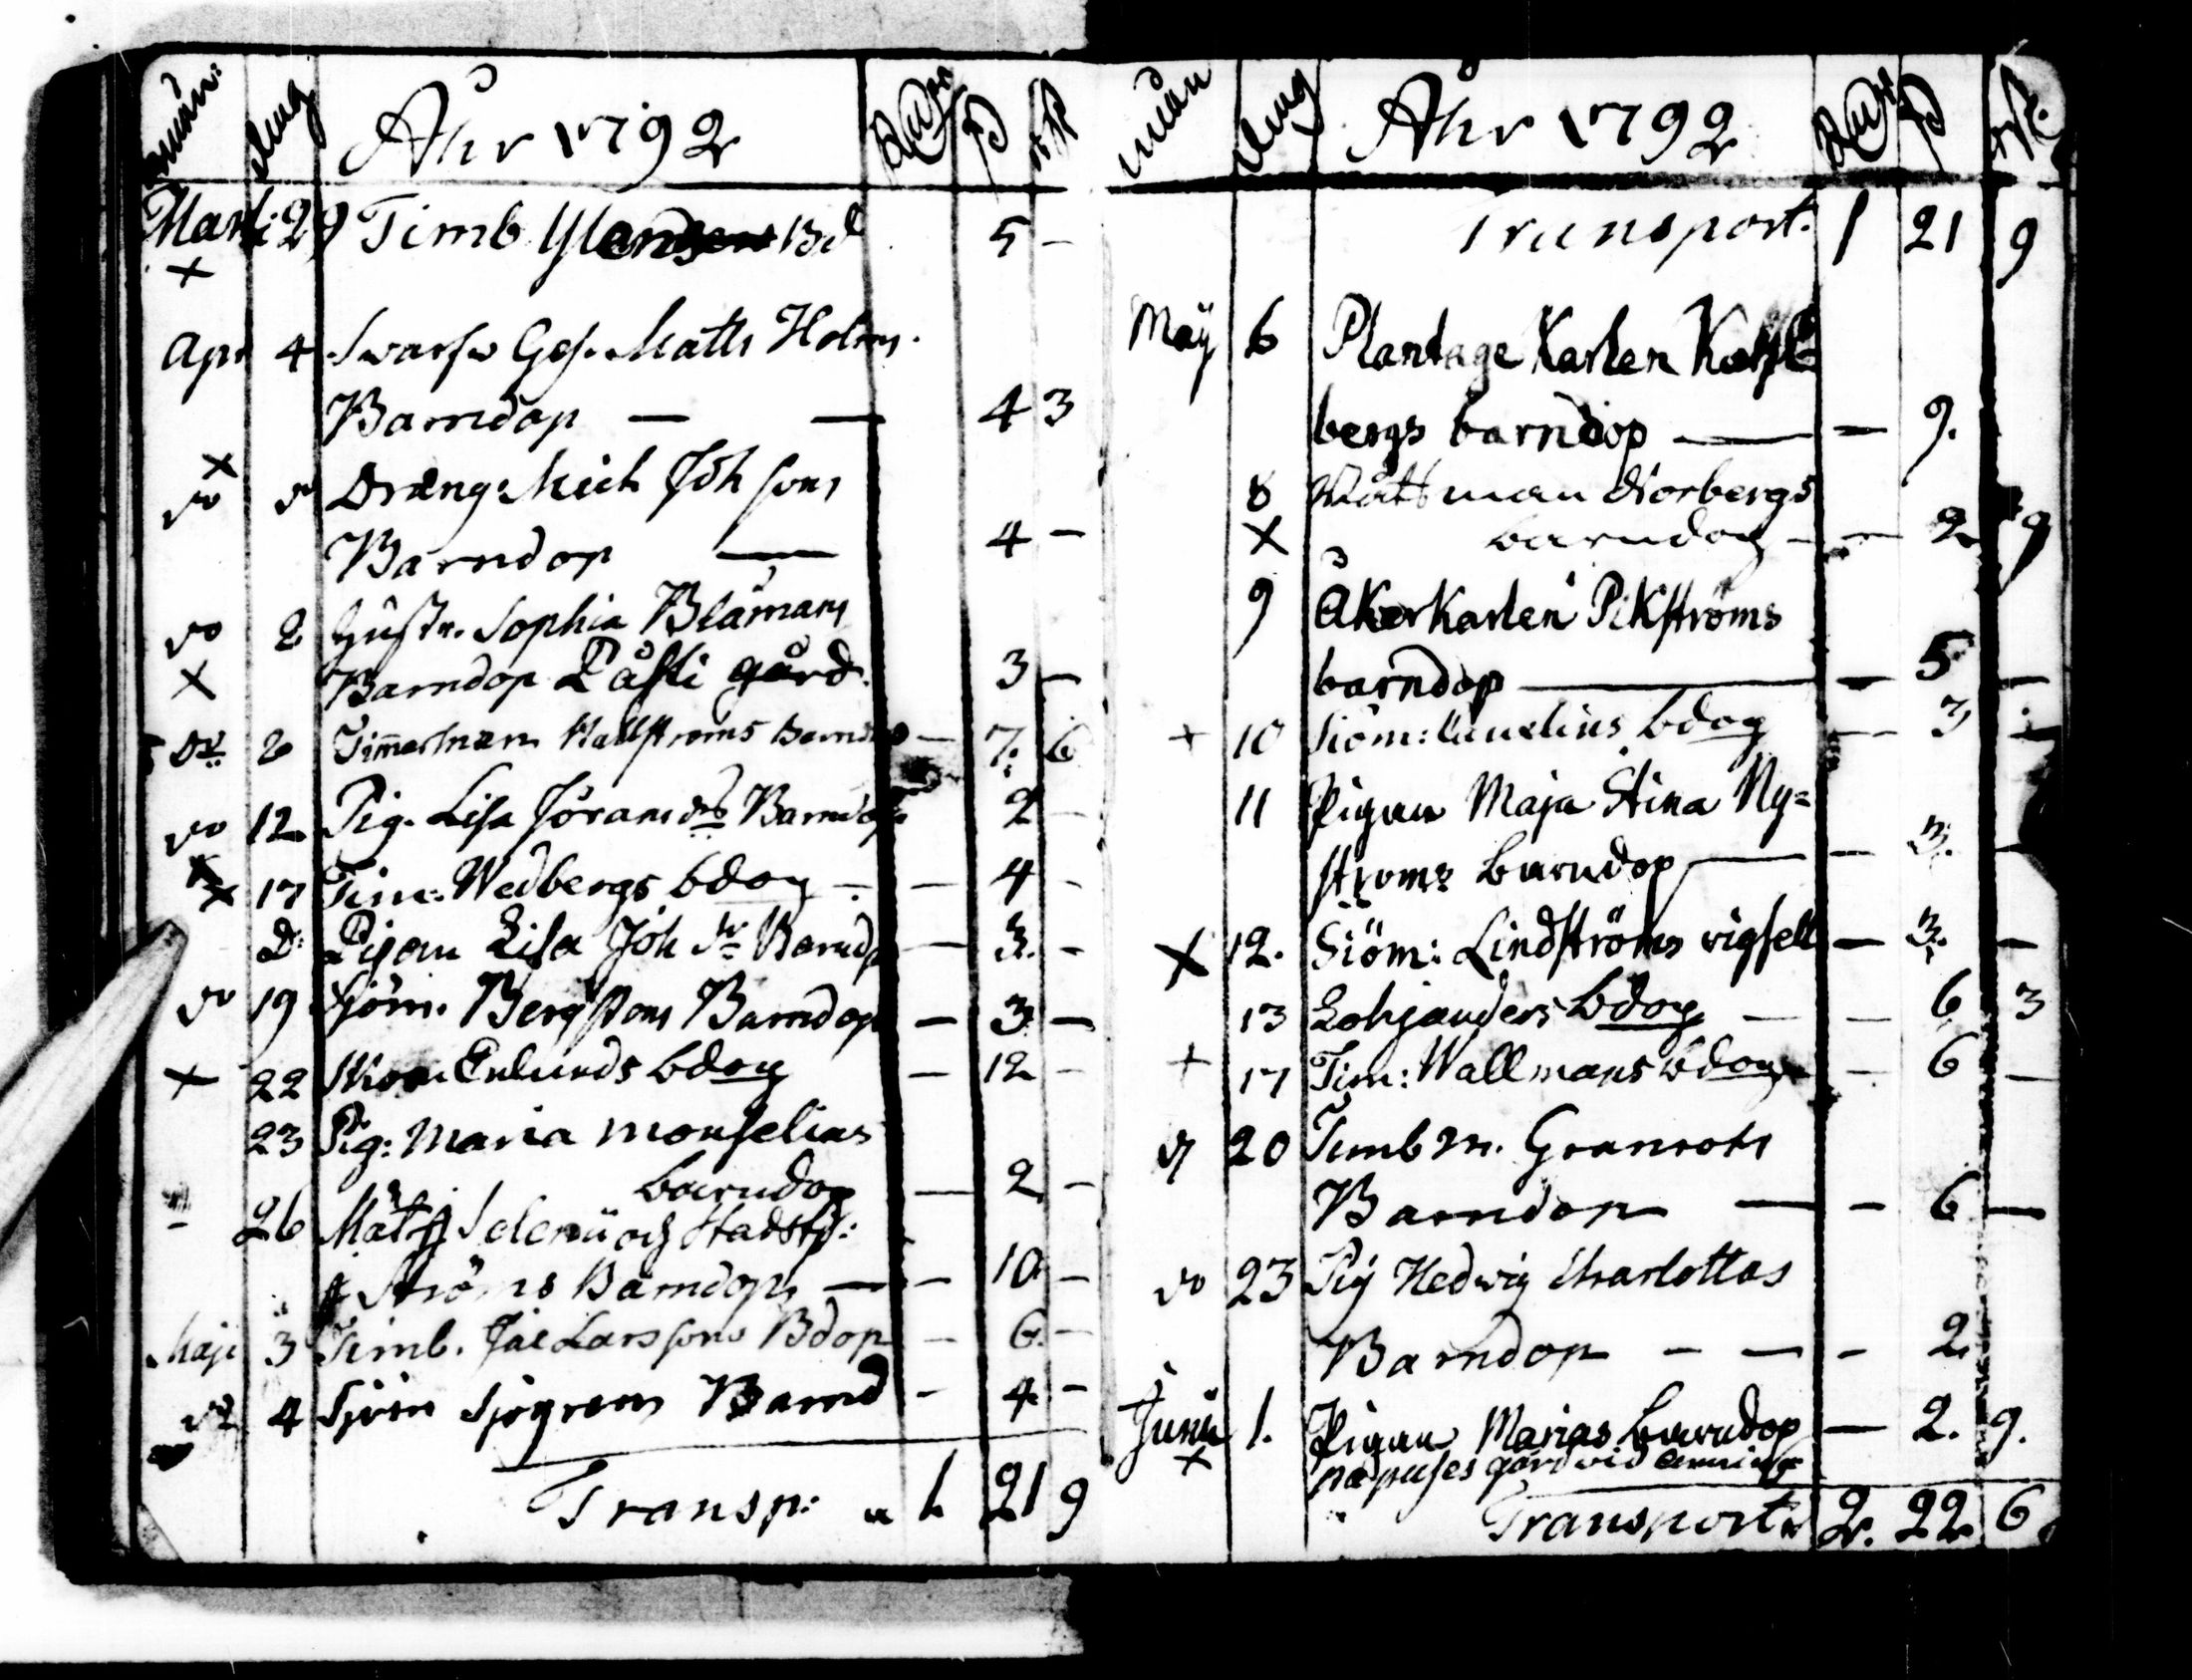 månd dag Åhr 1792 Rd ß rst
Marti 29 Timb Bd 5 –
×
Apr 4 Swarfw Ges. Matts Holms.
Barndop — — 4 3
×
do do Dräng: Mich Joh sons
Barndop — 4 –
do 2 Hustr. Sophia Blåmans
× Barndop Påsti gård. 3 –
do 2 Timmerman Wallströms Barndop – 7. 6
do 12 Pig. Lisa Jöransdr Barndop 2 –
× 17 Tim: Wedbergs bdop – – 4 –
D: Pigan Lisa Joh dr Barndop – 3. –
do 19 Sjöm. Bergstoms Barndop – 3 –
× 22 Enlunds bdop – 12 –
23 Pig: Maria Monselias
barndop — 2 –
– 26 Matts och Stadstj:
Ströms Barndop — – 10 –
Maji 3 Timb. Jac Larssons Bdop – 6 –
do 4 Sjöm Sjögrens Barnd – 4 –
Transp: 1. 21 9
månd dag Åhr 1792 Rd ß rst
Transport. 1 21 9
Maÿ 6 Plantage Karlen
bergs barndop — – 9.
8 Wattman Norbergs
× barndop – – 2 9
9 Åkerkarlen Pikströms
barndop — – 5 –
+ 10 Siöm: bdop – 3 –
11 Pigan Maja Stina Ny=
stroms barndop — – 3. –
× 12. Siöm: Lindströms vigsell – 3. –
13 Lohjanders bdop – – 6 3
+ 17 Tim: Wallmans bdop – 6 –
d 20 Timb m. Granroths
Barndop — – 6 –
do 23 Pig Hedwig Charlottas
Barndop – – – 2
Junii 1. Pigan Marias barndop – 2. 9.
× gård vid
Transport 2. 22 6